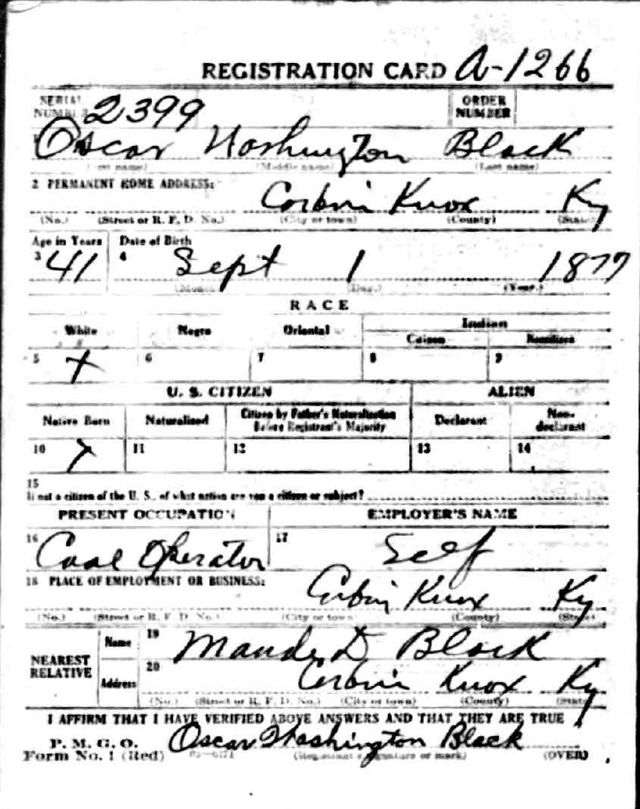 REGISTRATION CARD A-1266
SERIAL NUMBER 2399 ORDER NUMBER
Oscar Washington Black
(First name) (Middle name) (Last name)
2 PERMANENT HOME ADDRESS:
Corbin Knox Ky
(No.) (Street or R. F. D. No.) (City or town) (County) (State)
Age in Years Date of Birth
3 41 4 Sept 1 1877
(Month.) (Day.) (Year.)
RACE
White Negro Oriental Indian
Citizen Noncitizen
5 X 6 7 8 9
U. S. CITIZEN ALIEN
Native Born Naturalized Citizen by Father's Naturalization Before Registrant's Majority Declarant Non-declarant
10 X 11 12 13 14
15
If not a citizen of the U. S., of what nation are you a citizen or subject?
PRESENT OCCUPATION EMPLOYER'S NAME
16 Coal Operator 17 Self
18 PLACE OF EMPLOYMENT OR BUSINESS:
Corbin Knox Ky
(No.) (Street or R. F. D. No.) (City or town) (County) (State)
NEAREST RELATIVE Name 19 Maude D Black
Address 20 Corbin Knox Ky
(No.) (Street or R. F. D. No.) (City or town) (County) (State)
I AFFIRM THAT I HAVE VERIFIED ABOVE ANSWERS AND THAT THEY ARE TRUE
P. M. G. O.
Form No. 1 (Red) Oscar Washington Black
(Registrant's signature or mark) (OVER)